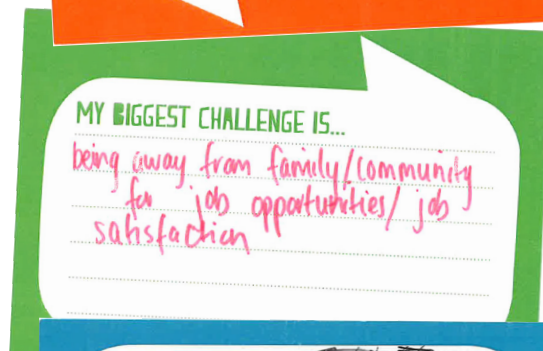 MY BIGGEST CHALLENGE IS...
being away from family/community
for job opportunities/ job
satisfaction